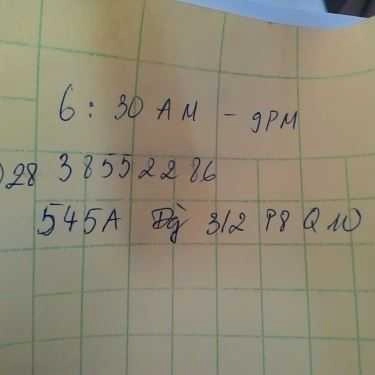 6 : 30 AM - 9PM
028 38552286
545A 312 P8 Q10